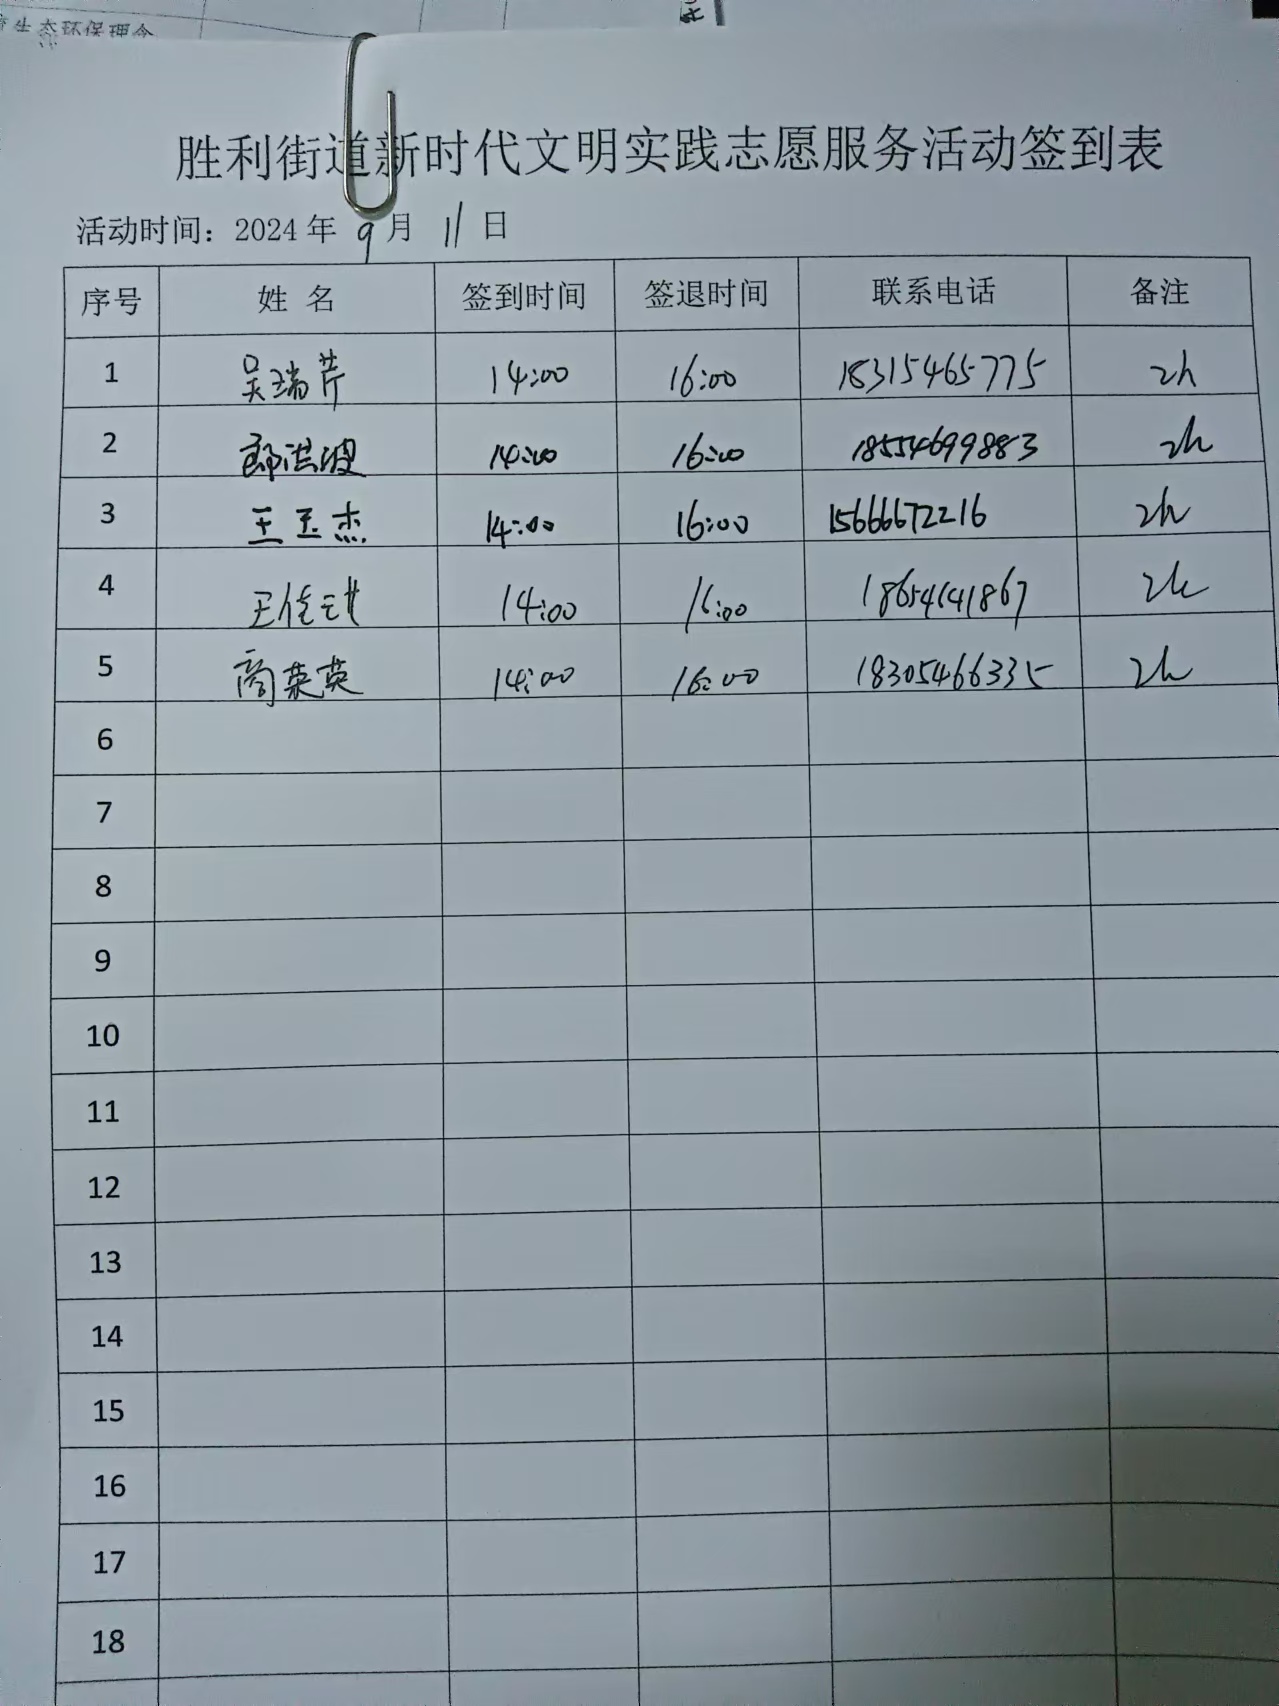 生态环保理念
胜利街道新时代文明实践志愿服务活动签到表
活动时间：2024年 9月 11日
序号 姓名 签到时间 签退时间 联系电话 备注
1 吴瑞芹 14:00 16:00 18315465775 2h
2 14:00 16:00 18554699883 2h
3 王玉杰 14:00 16:00 15666672216 2h
4 14:00 16:00 18654641867 2h
5 商英英 14:00 16:00 18305466335 2h
6
7
8
9
10
11
12
13
14
15
16
17
18